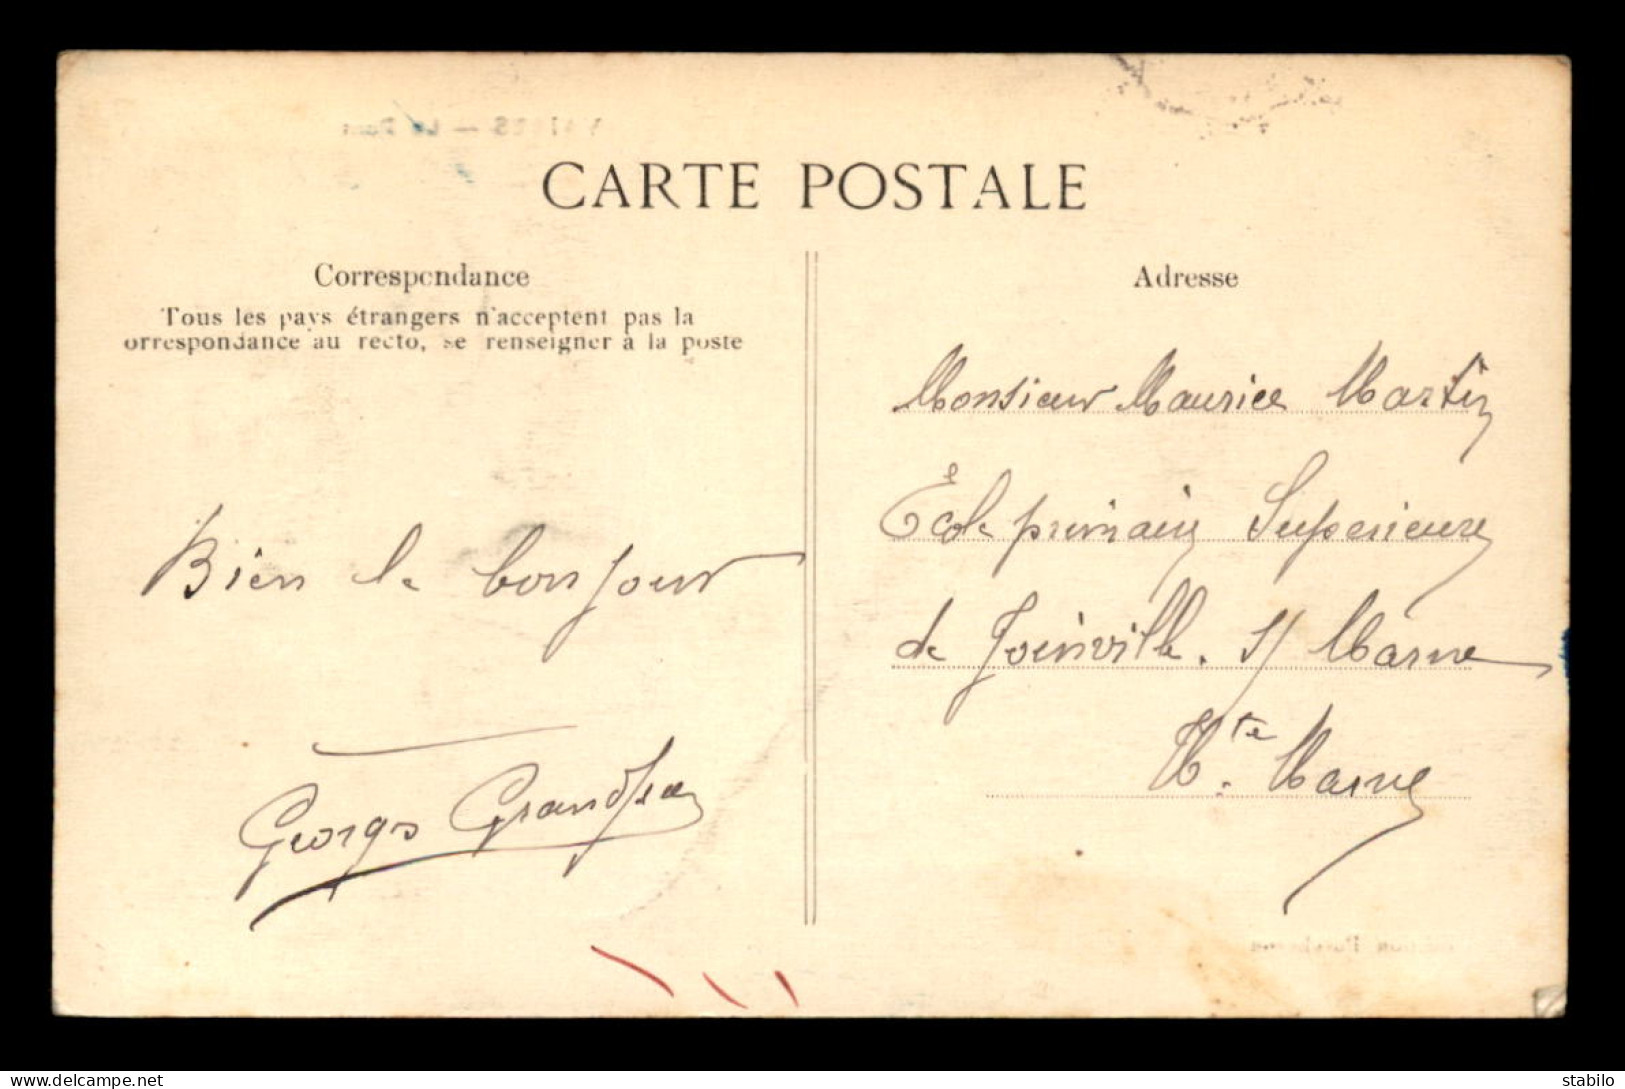 CARTE POSTALE
Correspondance
Tous les pays étrangers n'acceptent pas la
orrespondance au recto, se renseigner à la poste
Bien le bonjour
Georges
Adresse
Monsieur Maurice Martin
École primaire Supérieure
de Joinville. s/ Marne
Hte. Marne
www.delcampe.net
stabilo